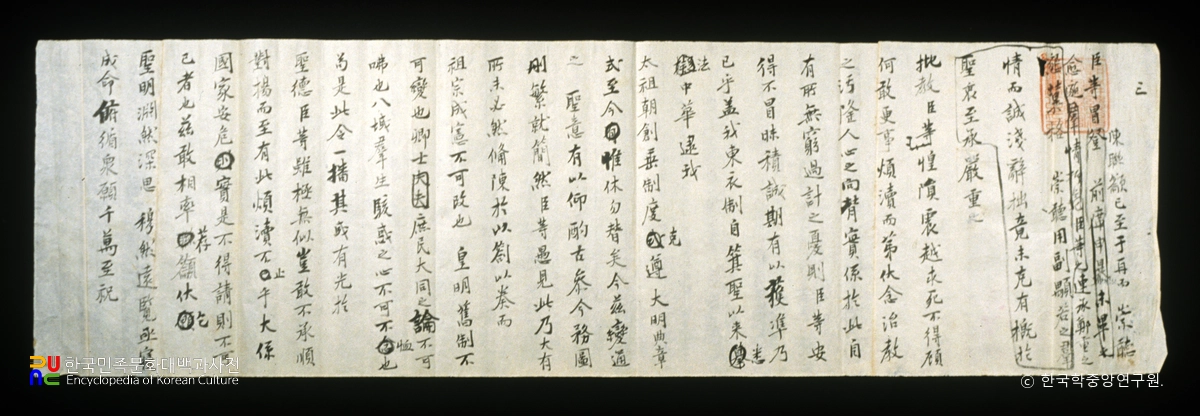 三
陳聯籲已至于再而 崇聽
臣等冒登 前席申暴未畢之
情而誠淺辭拙竟未克有槪於
聖衷至承嚴重之
批敎臣等惶隕震越求死不得顧
何敢更事煩瀆而第伏念治教
之汚隆人心之向背實係於此自
有所無窮過計之憂則臣等安
得不冒昧積誠期有以獲準乃
已乎盖我東衣制自箕聖以來悉
法中華逮我
太祖朝創垂制度克遵大明典章
式至今惟休勿替矣今玆變通
之 聖意有以仰酌古參今務圖
刪繁就簡然臣等愚見此乃大有
所未必然備陳於以箚以奏而
祖宗成憲不可改也 皇明舊制不
可變也卿士 庶民大同之論不可
咈也八域羣生駭惑之心不可不恤也
爲是此令一播其或有光於
聖德臣等雖極無似豈敢不承順
對揚而至有此煩瀆不止乎大係
國家安危實是不得請則不
已者也玆敢相率荐籲伏乞
聖明淵然深思 穆然遠覽亟
成命俯循衆願千萬至祝
한국민족문화대백과사전
Encyclopedia of Korean Culture
© 한국학중앙연구원.